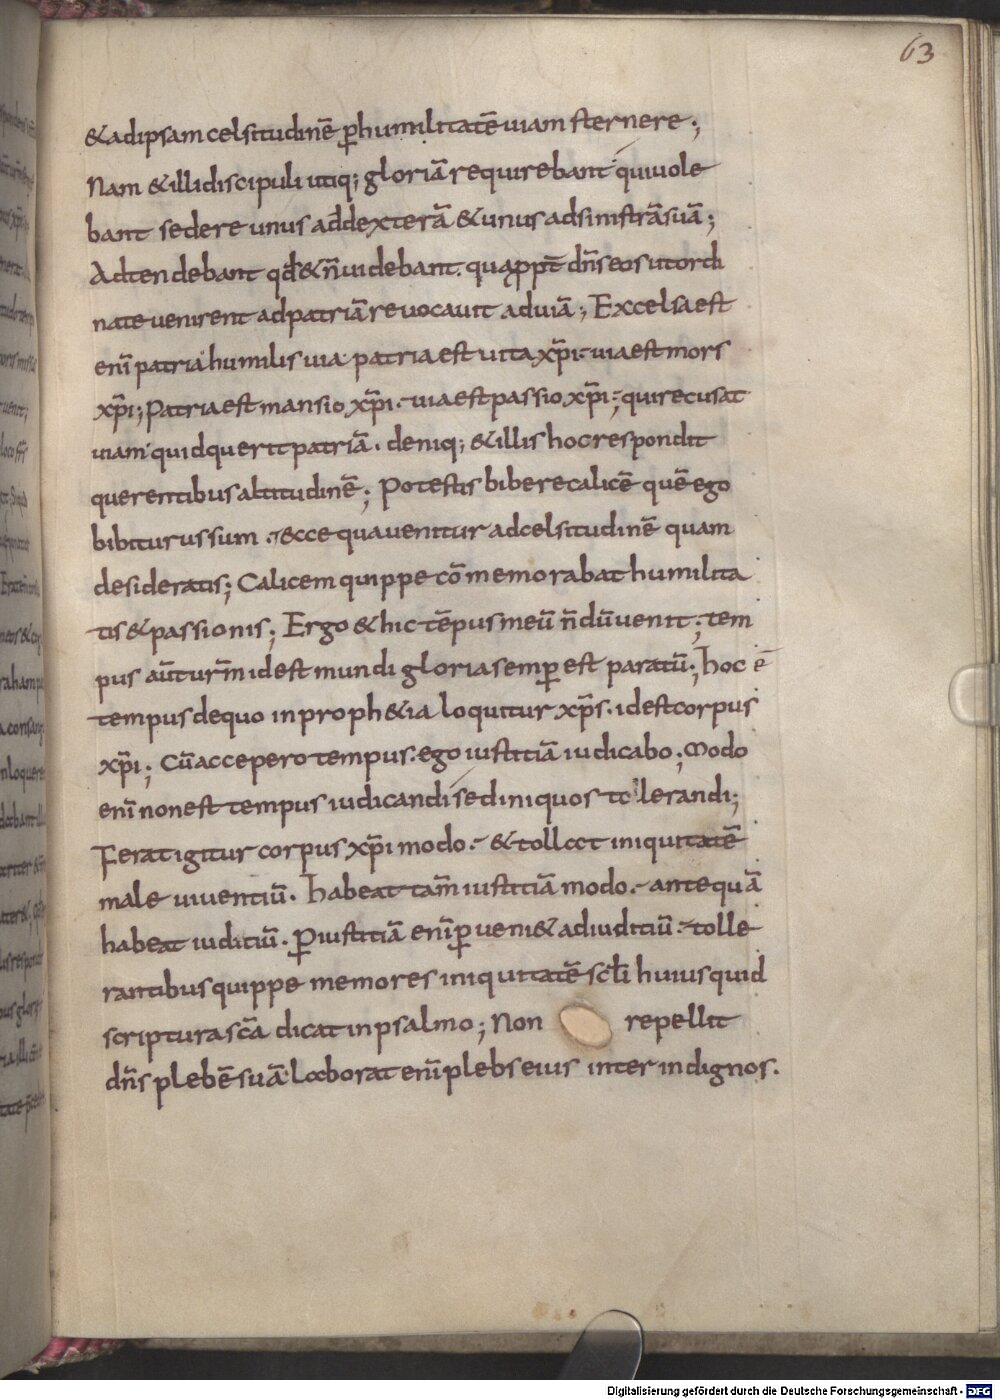 63
& ad ipsam celsitudinē p̄ humilitatē uiam sternere;
Nam & illi discipuli utiq; gloriā requirebant qui uole
bant sedere unus ad dexterā & unus ad sinistrā suā;
Adtendebant qđ & n̄ uidebant. quappt̄ dn̄s eos ut ordi
nate uenirent ad patriā reuocauit ad uiā; Excelsa est
enī patria humilis uia. patria est uita xp̄i. uia est mors
xp̄i; Patria est mansio xp̄i. uia est passio xp̄i; qui recusat
uiam quid querit patriā. deniq; & illis hoc respondit
querentibus altitudinē; Potestis bibere calicē quē ego
bibiturus sum. ecce qua uenitur ad celsitudinē quam
desideratis; Calicem quippe cōmemorabat humilita
tis & passionis; Ergo & hic tēpus meū n̄dū uenit; tem
pus aūt ur̄m id est mundi gloria semp̄ est paratū; hoc ē
tempus de quo in proph&ia loquitur xp̄s. id est corpus
xp̄i; Cū accepero tempus. ego iustitiā iudicabo; Modo
enī non est tempus iudicandi sed iniquos tolerandi;
Ferat igitur corpus xp̄i modo. & tolleet iniquitatē
male uiuentiū. habeat tam̄ iustitiā modo. antequā
habeat iuditiū. P̄ iustitiā enī p̄ueni& ad iuditiū. tolle
rantibus quippe memores iniquitatē scl̄i huius quid
scriptura sc̄a dicat in psalmo; Non repellit
dn̄s plebē suā. laborat enī plebs eius inter indignos.
Digitalisierung gefördert durch die Deutsche Forschungsgemeinschaft - DFG